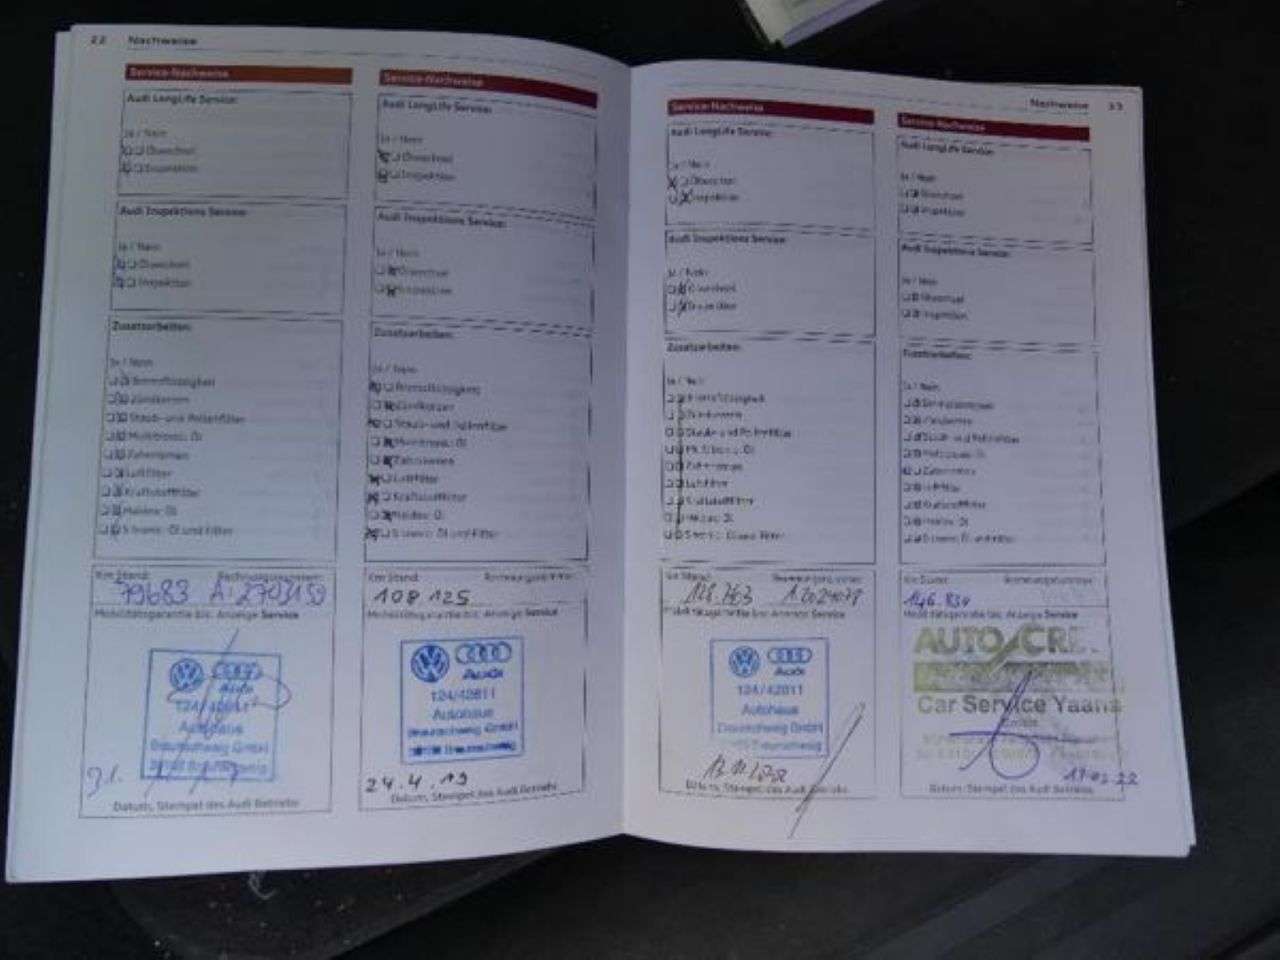 22 Nachweise
Service-Nachweise
Audi LongLife Service:
Ja / Nein
Ölwechsel
Inspektion
Audi Inspektions Service:
Ja / Nein
Ölwechsel
Inspektion
Zusatzarbeiten:
Ja / Nein
Bremsflüssigkeit
Zündkerzen
Staub- und Pollenfilter
Multitronic: Öl
Zahnriemen
Luftfilter
Kraftstofffilter
Haldex: Öl
S tronic: Öl und Filter
Km Stand: Rechnungsnummer:
79683
Mobilitätsgarantie bis: Anzeige Service
Audi
Autohaus
Braunschweig GmbH
Datum, Stempel des Audi Betriebs
Service-Nachweise
Audi LongLife Service:
Ja / Nein
Ölwechsel
Inspektion
Audi Inspektions Service:
Ja / Nein
Ölwechsel
Inspektion
Zusatzarbeiten:
Ja / Nein
Bremsflüssigkeit
Zündkerzen
Staub- und Pollenfilter
Multitronic: Öl
Zahnriemen
Luftfilter
Kraftstofffilter
Haldex: Öl
S tronic: Öl und Filter
Km Stand: Rechnungsnummer:
108 125
Mobilitätsgarantie bis: Anzeige Service
Audi
124/42811
Autohaus
Braunschweig GmbH
Braunschweig
24.4.19
Datum, Stempel des Audi Betriebs
Nachweise 23
Service-Nachweise
Audi LongLife Service:
Ja / Nein
Ölwechsel
Inspektion
Audi Inspektions Service:
Ja / Nein
Ölwechsel
Inspektion
Zusatzarbeiten:
Ja / Nein
Bremsflüssigkeit
Zündkerzen
Staub- und Pollenfilter
Multitronic: Öl
Zahnriemen
Luftfilter
Kraftstofffilter
Haldex: Öl
S tronic: Öl und Filter
Km Stand: Rechnungsnummer:
Mobilitätsgarantie bis: Anzeige Service
Audi
124/42811
Autohaus
Braunschweig GmbH
Braunschweig
Datum, Stempel des Audi Betriebs
Service-Nachweise
Audi LongLife Service:
Ja / Nein
Ölwechsel
Inspektion
Audi Inspektions Service:
Ja / Nein
Ölwechsel
Inspektion
Zusatzarbeiten:
Ja / Nein
Bremsflüssigkeit
Zündkerzen
Staub- und Pollenfilter
Multitronic: Öl
Zahnriemen
Luftfilter
Kraftstofffilter
Haldex: Öl
S tronic: Öl und Filter
Km Stand: Rechnungsnummer:
146.834
Mobilitätsgarantie bis: Anzeige Service
Car Service Yaans
GmbH
Datum, Stempel des Audi Betriebs